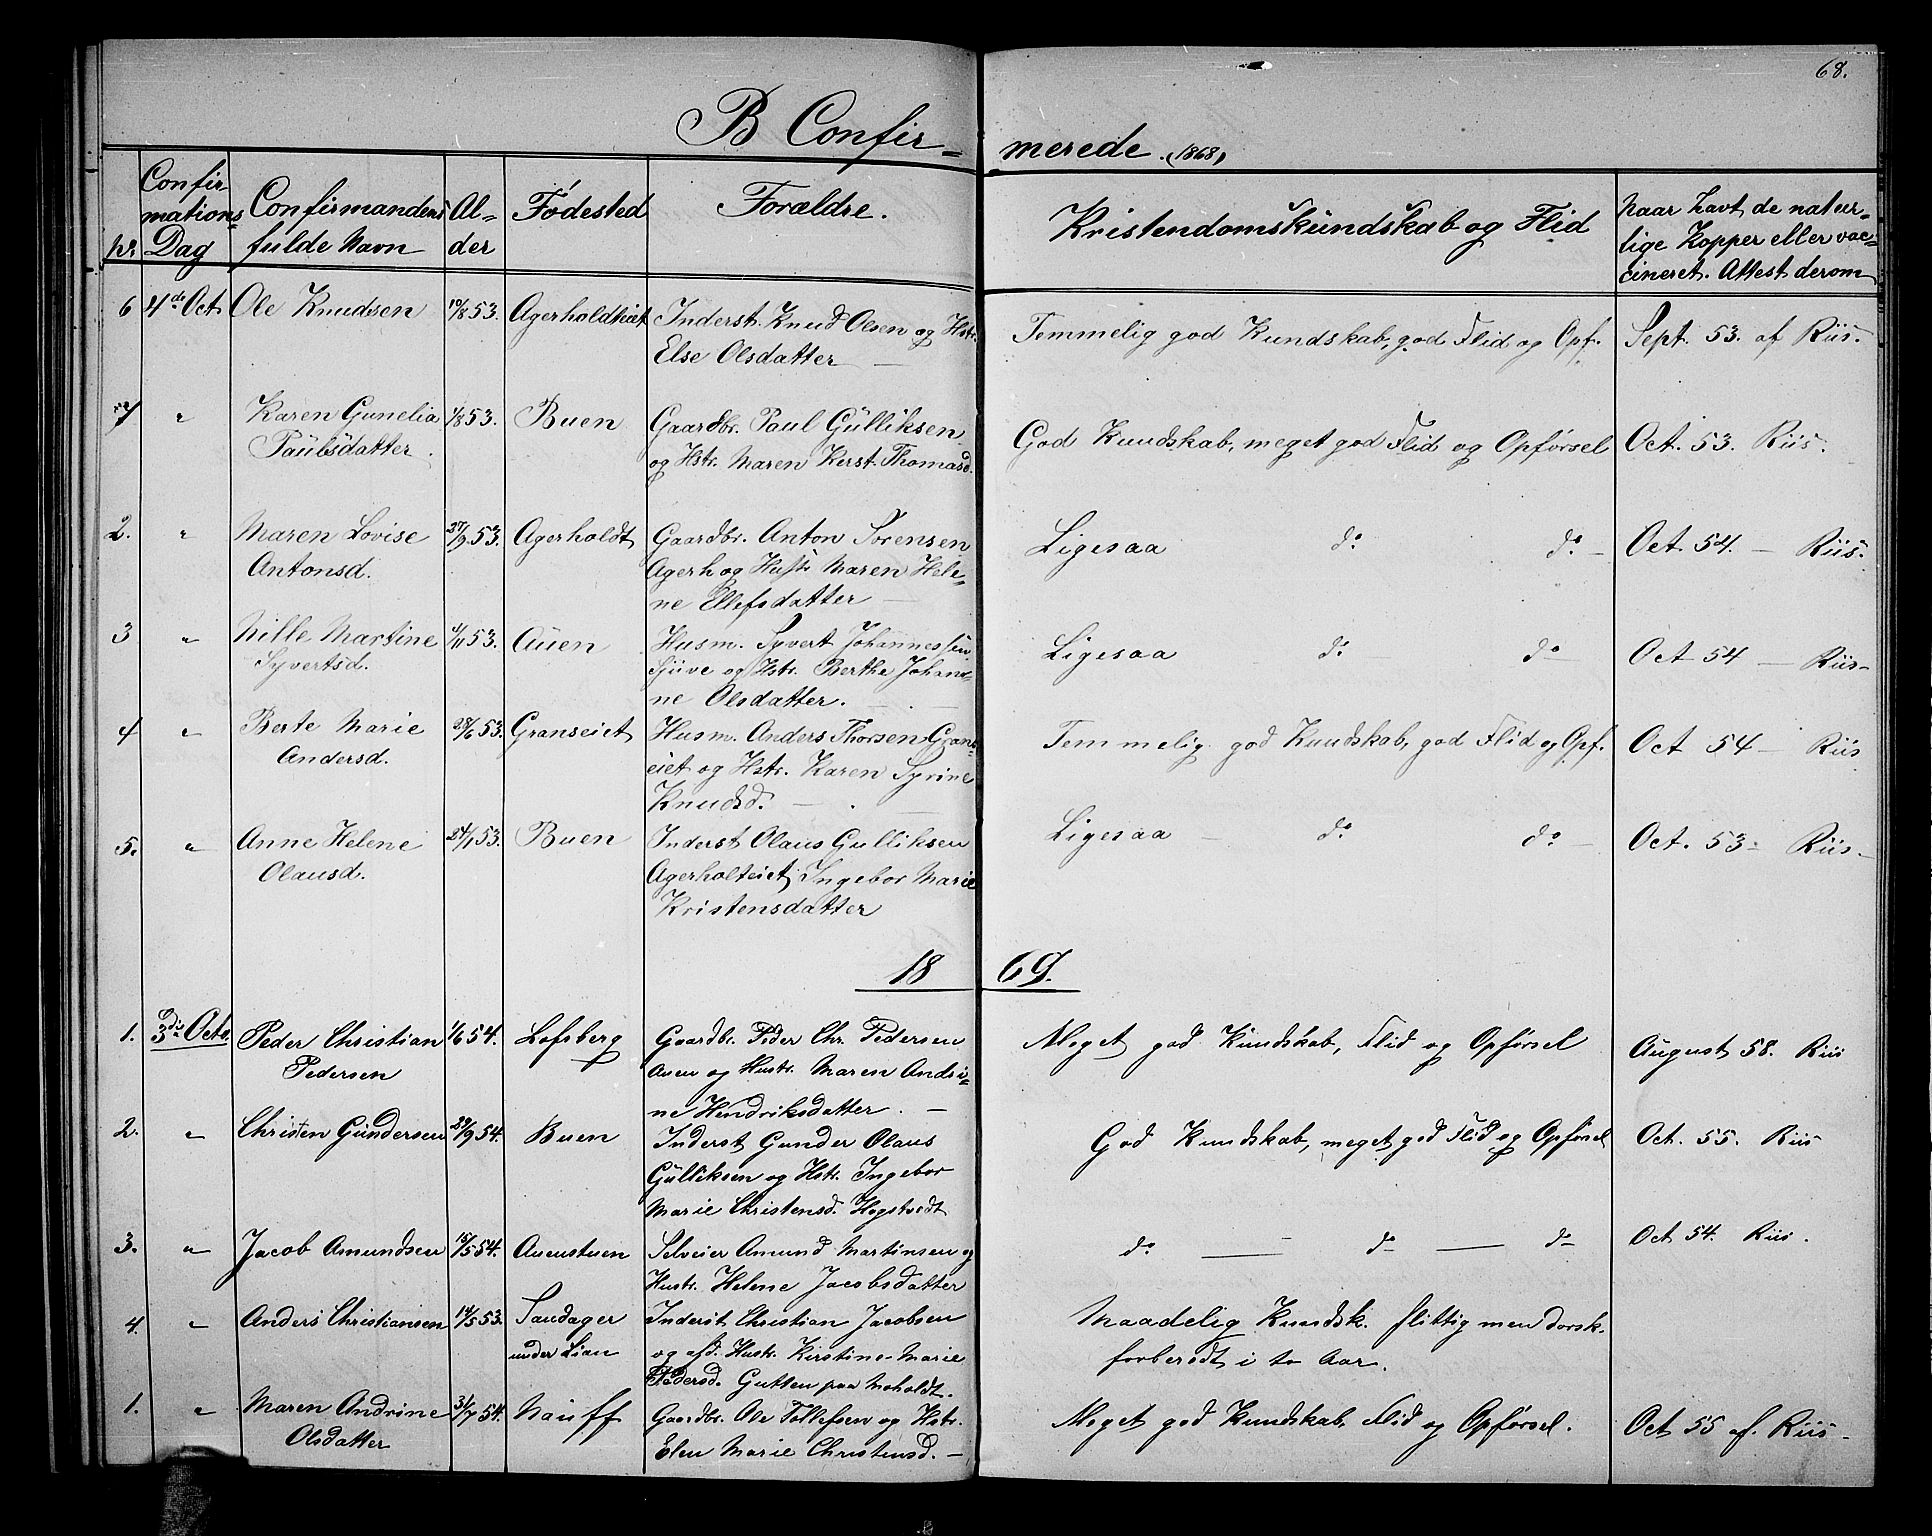 68.
B Confirmerede. (1868)
No. Confirmations Dag Confirmandens fulde Navn Alder Fødested Forældre. Kristendomskundskab og Flid Naar havt de naturlige Kopper eller vaccineret. Attest derom
6 4de Oct Ole Knudsen 10/8 53. Agerholdteiet Inderst. Knud Olsen og Hstr.
Else Olsdatter — Temmelig god Kundskab, god Flid og Opf. Sept. 53. af Riis.
1 " Karen Gunelia 1/8 53. Buen Gaardbr. Paul Gulliksen
Paulsdatter. og Hstr. Maren Kerst. Thomasd. God Kundskab, meget god Flid og Opførsel Oct. 53. Riis.
2. " Maren Lovise 27/9 53. Agerholdt Gaardbr. Anton Sørensen Ligesaa do do — Oct. 54. — Riis.
Antonsd. Agerh og Hustr Maren Hele-
ne Ellefsdatter —
3 " Nille Martine 4/11 53. Auen Husm. Syvert Johannessen Ligesaa do do — Oct 54 — Riis —
Syvertsd. Sjuve og Hstr. Berthe Johan-
ne Olsdatter. —
4 " Berte Marie 28/6 53. Granseiet Husm. Anders Thorsen Grans- Temmelig god Kundskab, god Flid og Opf. Oct 54 — Riis
Andersd. eiet og Hstr. Karen Syrine
Knudsd. —
5. " Anne Helene 24/1 53. Buen Inderst Olaus Gulliksen Ligesaa — do do — Oct. 53 — Riis —
Olausd. Agerholteiet, Ingebor Marie
Kristensdatter
1869.
1. 3die Octb. Peder Christian 1/6 54. Lofsberg Gaardbr. Peder Chr. Pedersen Meget god Kundskab, Flid og Opførsel August 58. Riis
Pedersen Auen og Hustr. Maren Andri-
ne Hendriksdatter. —
2. " Christen Gundersen 29/9 54. Buen Inderst Gunder Olaus God Kundskab, meget god Flid og Opførsel Oct. 55. Riis
Gulliksen og Hstr. Ingebor
Marie Christensd. Hegstvedt
3. " Jacob Amundsen 15/5 54. Auenstuen Selveier Amund Martinsen og do — do — do Oct 54. Riis.
Hustr. Helene Jacobsdatter
4. " Anders Christiansen 14/5 53. Sandager Inderst Christian Jacobsen Maadelig Kundsk. flittig men dorsk.
under Lian og afd. Hustr. Kirstine Marie forberedt i to Aar.
Pedersd. Gutten paa Moholdt.
1. " Maren Andrine 31/7 54. Nauff Gaardbr. Ole Tollefsen og Hstr. Meget god Kundskab, Flid og Opførsel. Oct 55 af. Riis —
Olsdatter Elen Marie Christensd. —